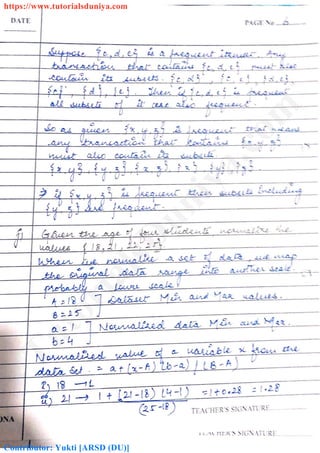 https://www.tutorialsduniya.com
DATE
PAGE No
Suppose {c, d, e} is a frequent itemset. Any
transaction that contains {c, d, e} must also
contain its subsets {c, d}, {c, e}, {d, e},
{c}, {d}, {e}. Then if {c, d, e} is frequent
all subsets of it are also frequent.
So as given {x, y, z} is frequent that means
any transaction that contains {x, y, z}
must also contain its subsets
{x, y}, {y, z}, {x, z}, {x}, {y}, {z}.
⇒ if {x, y, z} is frequent then subsets including
{y, z} are frequent.
Given the age of four students normalize the
values {18, 21, 22, 25}
When we normalize a set of data, we map
the original data range into another scale
probably a lower scale.
A = 18 ] Dataset Min and Max values.
B = 25
a = 1 ] Normalized data Min and Max.
b = 4
Normalized value of a variable x from the
data set. = a + (x-A)(b-a) / (B-A)
i) 18 → 1
ii) 21 → 1 + (21-18)(4-1) = 1+0.28 = 1.28
(25-18)
TEACHER'S SIGNATURE
TEACHER'S SIGNATURE
Contributor: Yukti [ARSD (DU)]